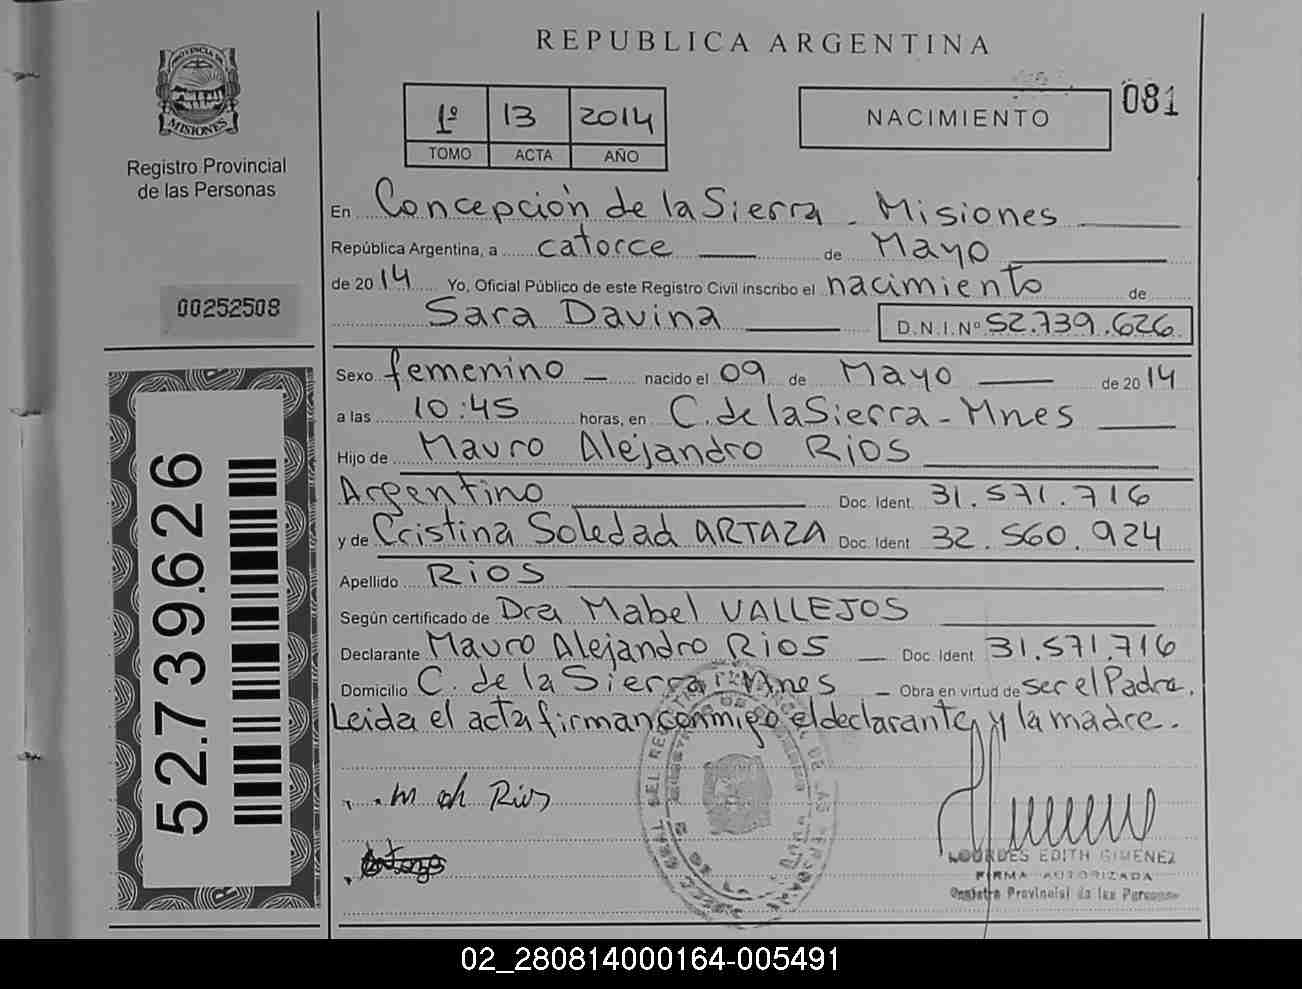 REPUBLICA ARGENTINA
PROVINCIA DE
MISIONES
Registro Provincial
de las Personas
1º 13 2014
TOMO ACTA AÑO
NACIMIENTO
081
En Concepción de la Sierra - Misiones
República Argentina, a catorce de Mayo
de 2014 Yo, Oficial Público de este Registro Civil inscribo el nacimiento de
00252508
Sara Davina D.N.I.Nº 52.739.626
Sexo femenino — nacido el 09 de Mayo de 2014
a las 10:45 horas, en C. de la Sierra - Mnes
Hijo de Mauro Alejandro RIOS
Argentino Doc. Ident. 31.571.716
y de Cristina Soledad ARTAZA Doc. Ident 32.560.924
Apellido RIOS
Según certificado de Dra Mabel VALLEJOS
Declarante Mauro Alejandro RIOS — Doc. Ident 31.571.716
Domicilio C. de la Sierra - Mnes - Obra en virtud de ser el Padre.
Leida el acta firman conmigo el declarante y la madre.
52.739.626
LOURDES EDITH GIMENEZ
FIRMA AUTORIZADA
Registro Provincial de las Personas
02_280814000164-005491